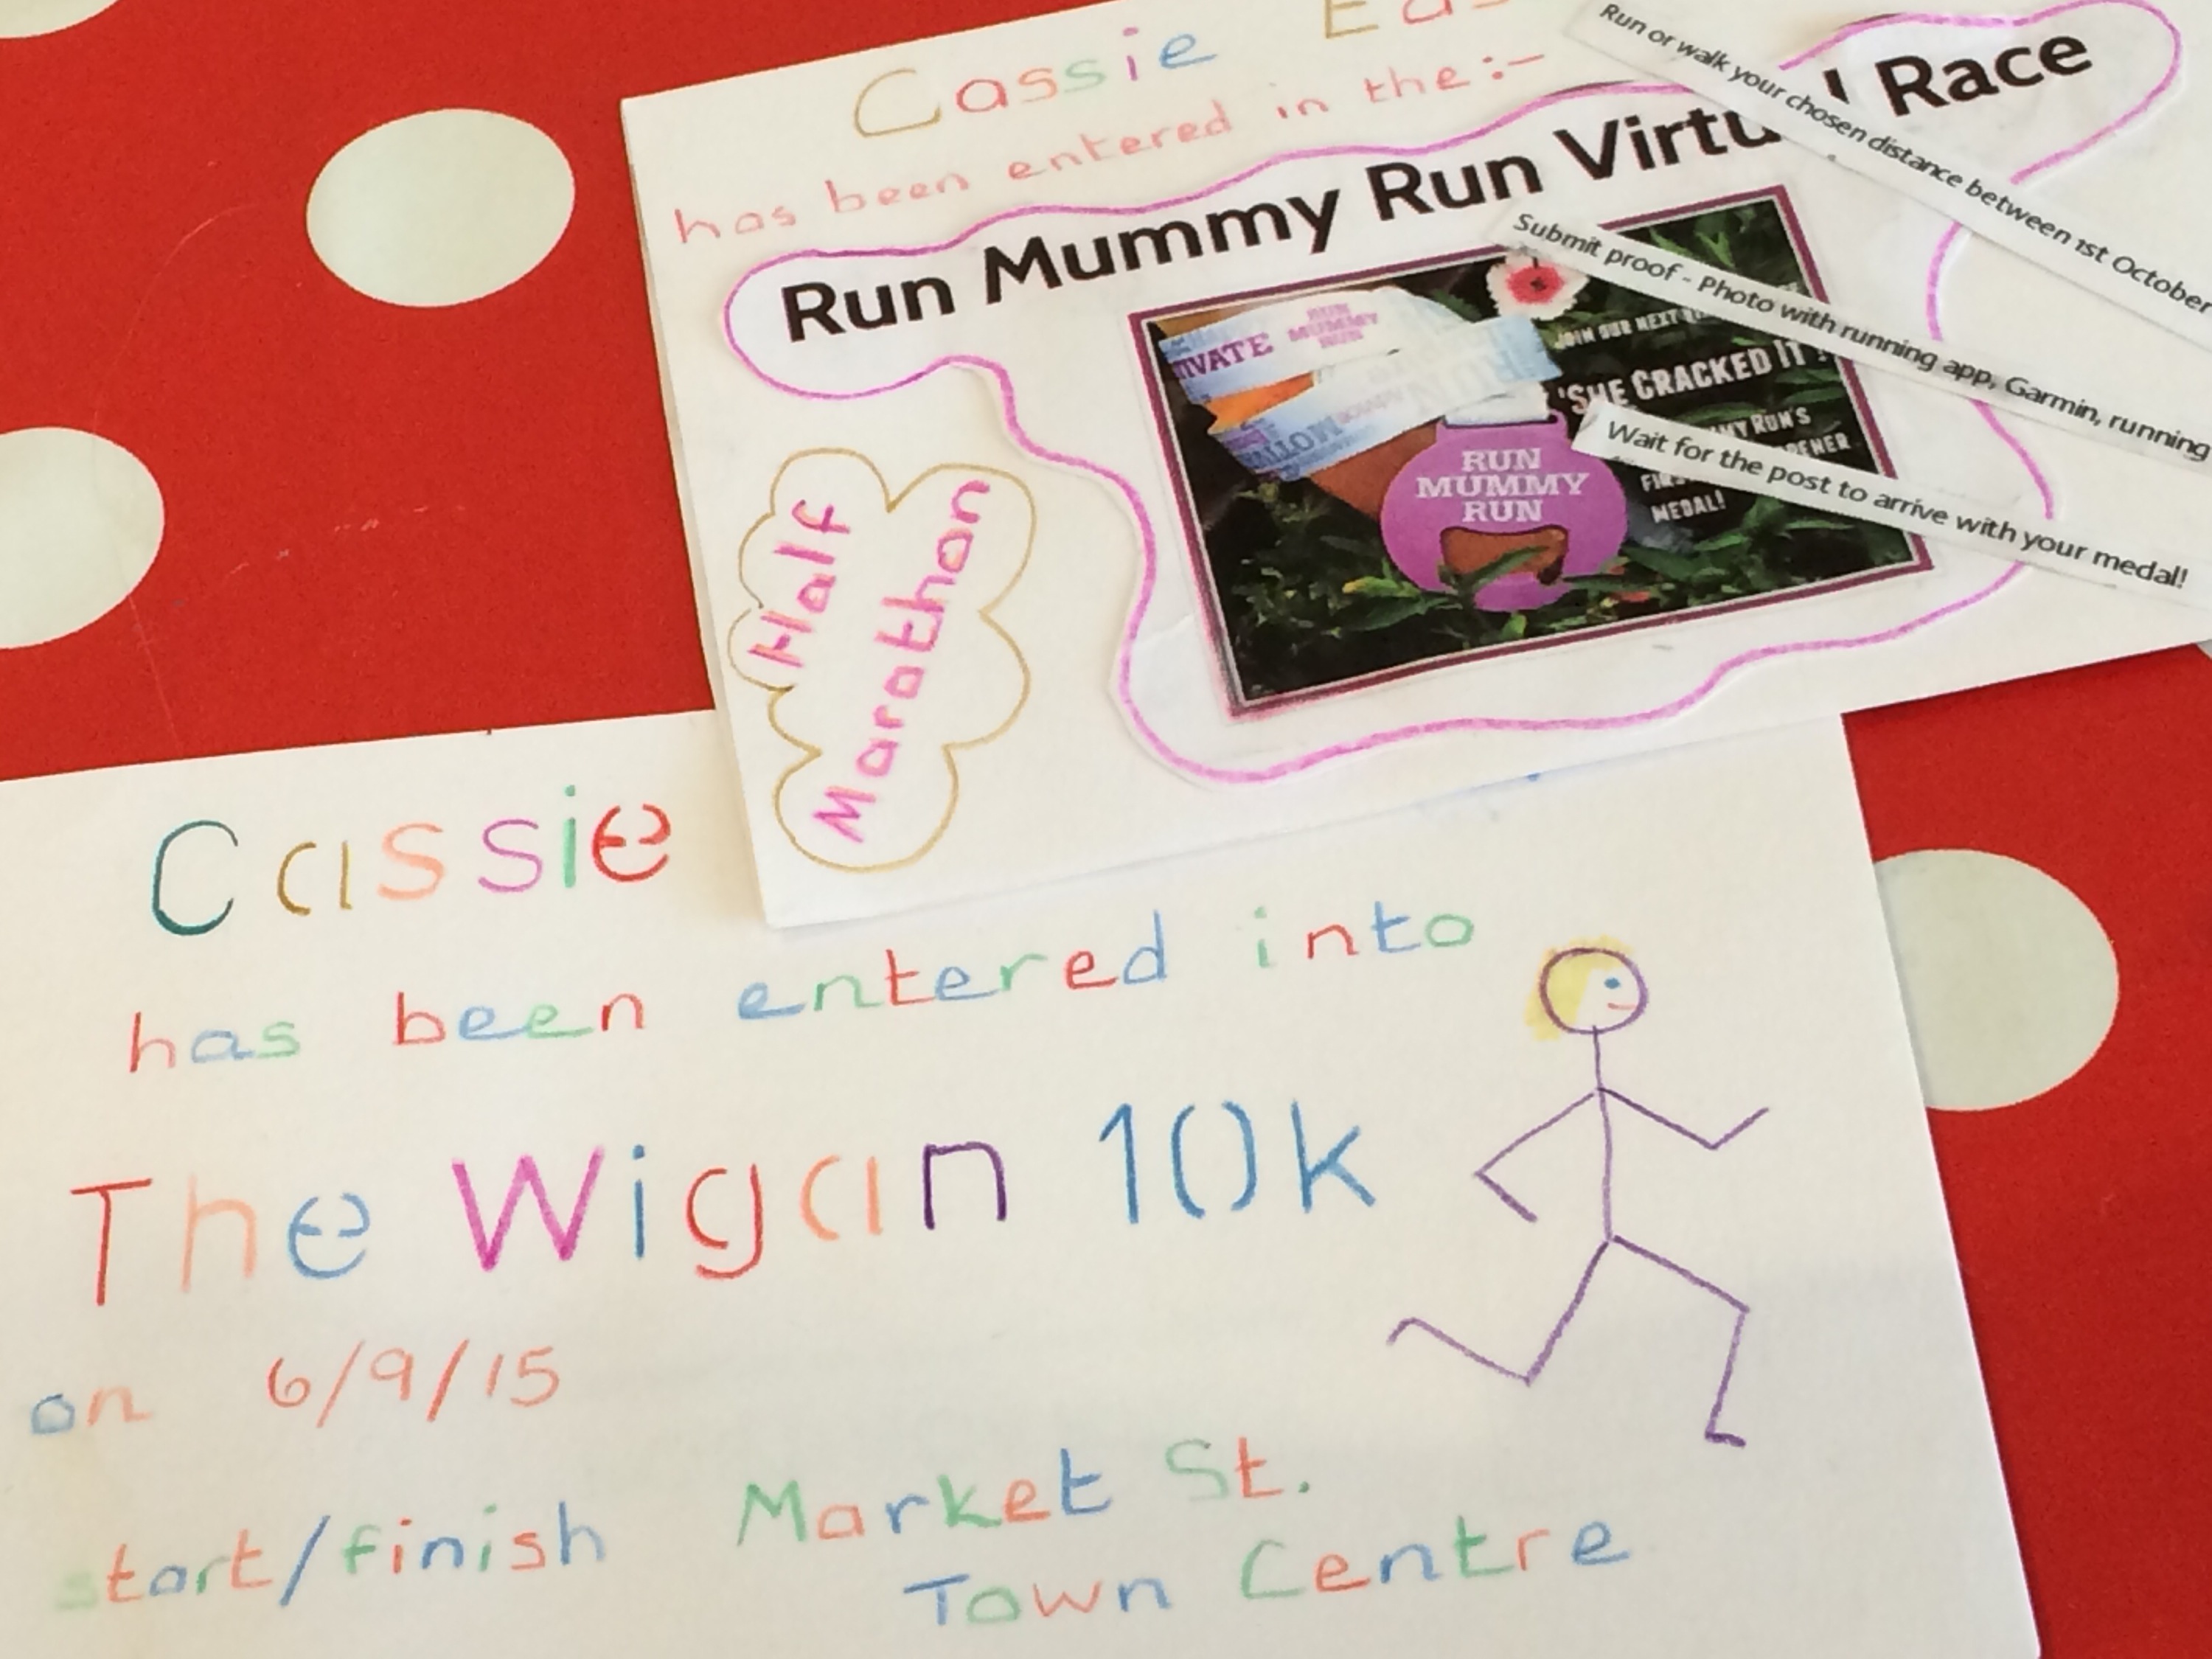 Cassie
has been entered in the:-
Run Mummy Run Virtu Race
Run or walk your chosen distance between 1st October
Submit proof - Photo with running app, Garmin, running
Wait for the post to arrive with your medal!
RUN
MUMMY
RUN
JOIN OUR NEXT
'SHE CRACKED IT'
RUN'S
MEDAL!
RUN
MUMMY
RUN
Half
Marathon
Cassie
has been entered into
The Wigan 10k
on 6/9/15
start/finish Market St.
Town Centre